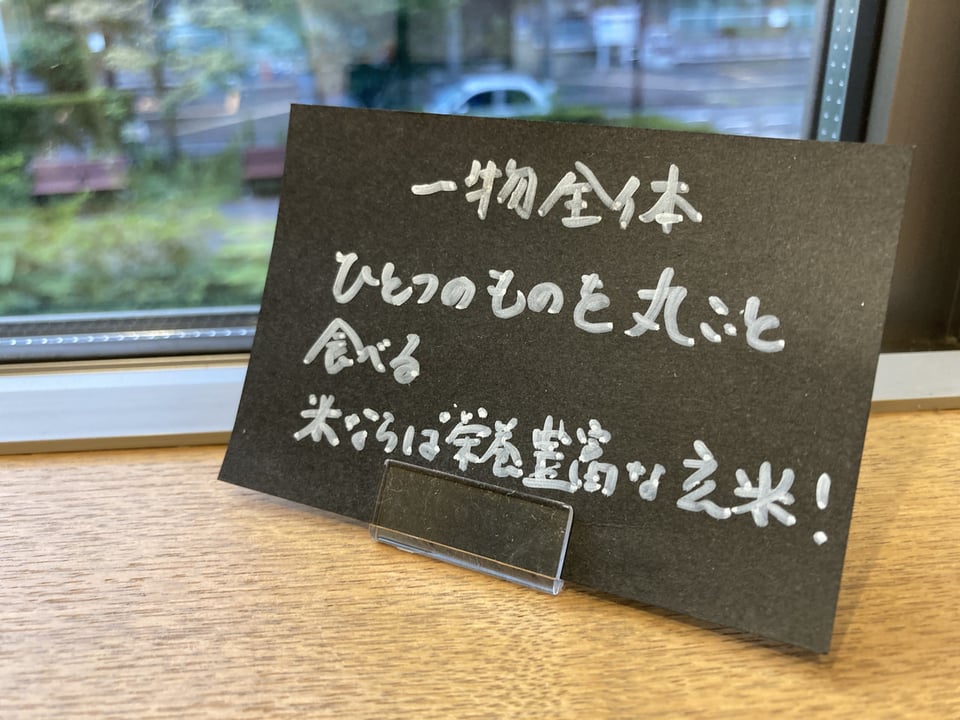 一物全体
ひとつのものを丸ごと
食べる
米ならば栄養豊富な玄米!